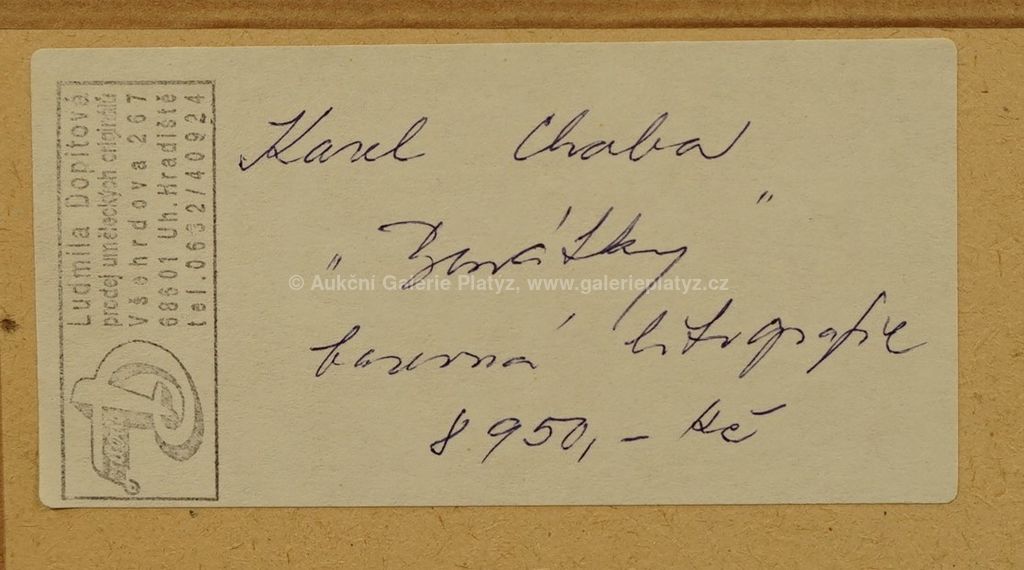 Ludmila Dopitová
prodej uměleckých originálů
Všehrdova 267
68601 Uh.Hradiště
tel.0632/40924
Karel Chaba
„Benátky"
© Aukční Galerie Platyz, www.galerieplatyz.cz
barevná litografie
8950,- Kč